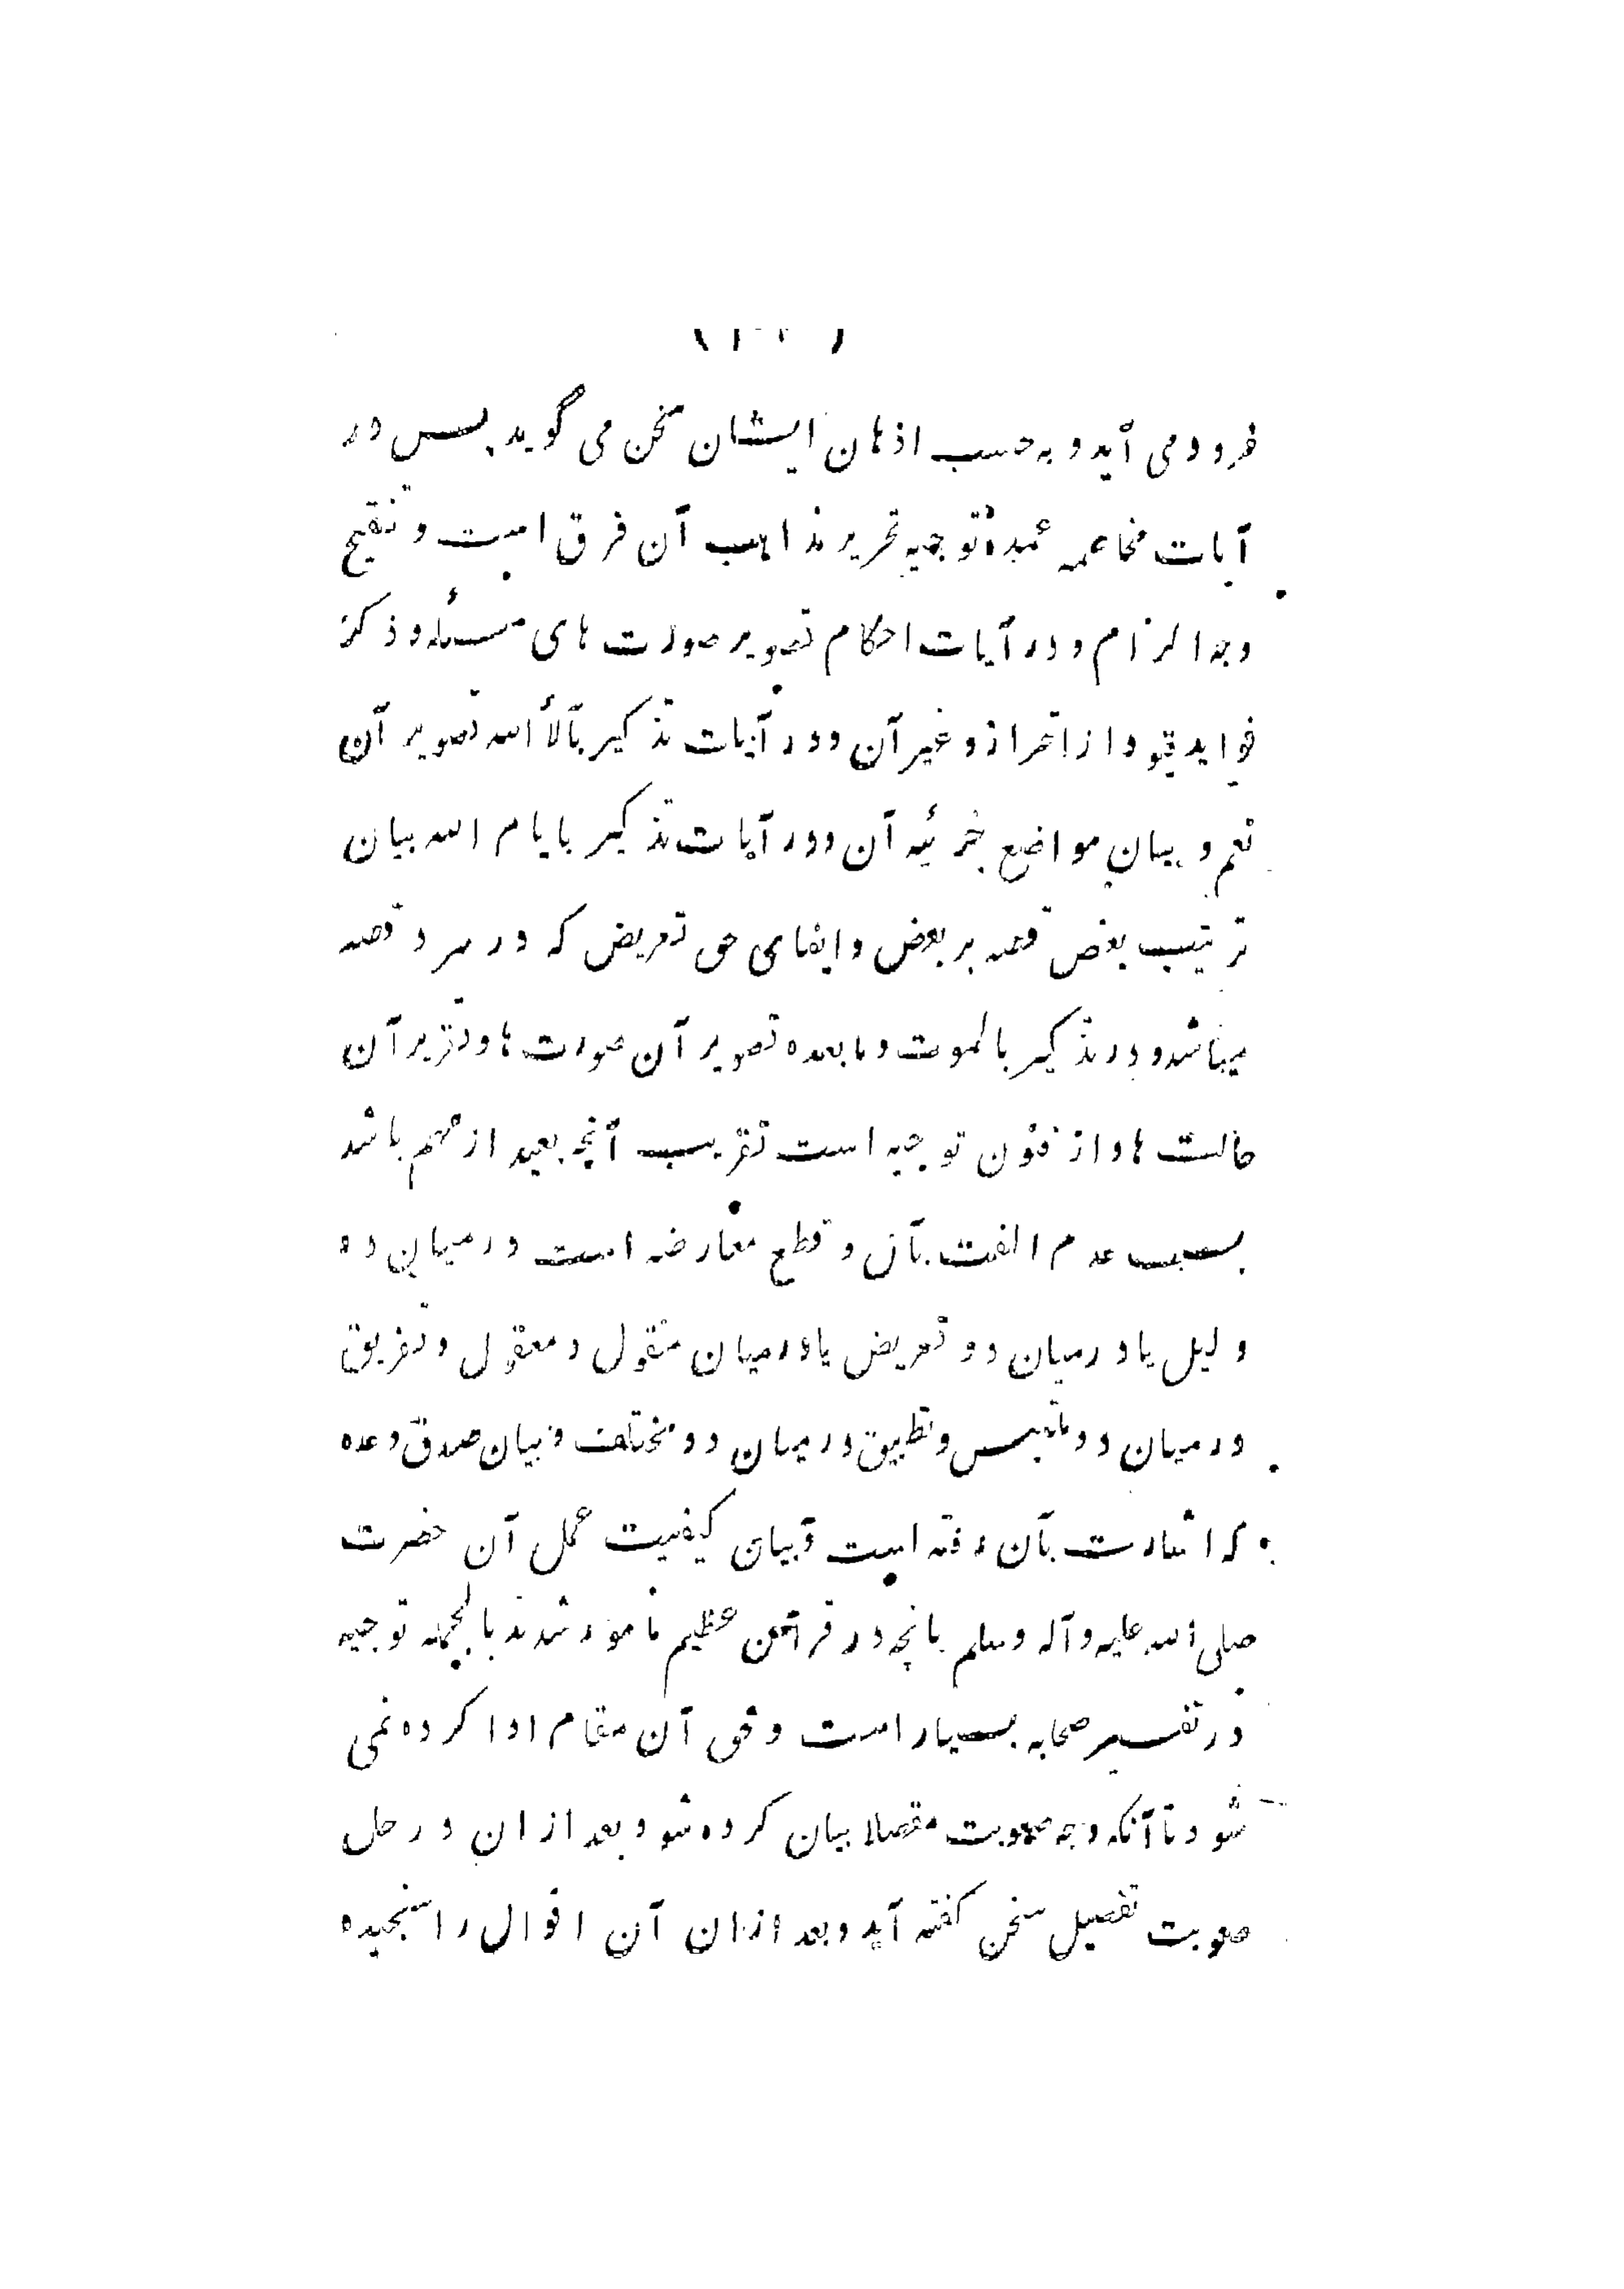 فرود می آید و به حسب اذهان ایشان سخن می گوید پس در
آیات مخاصمه عمده توجیه تحریر مذاهب آن فرق است و تنقیح
وجه الزام و در آیات احکام تصویر صورت های مسئله و ذکر
فواید قیود از احتراز و غیر آن و در آیات تذکیر بآلأ الله تصویر آن
نعم و بیان مواضع جزئیه آن و در آیات تذکیر بایام الله بیان
ترتیب بعض قصه بر بعض و ایفای حق تعریض که در سرد قصه
میباشد و در تذکیر بالموت و ما بعده تصویر آن صورت ها و تقریر آن
حالت ها و از فنون توجیه است تقریب آنچه بعید از فهم باشد
بسبب عدم الفت بآن و قطع معارضه است درمیان دو
دلیل یا درمیان دو تعریض یا درمیان منقول و معقول و تفریق
درمیان دو ملتبس و تطبیق درمیان دو مختلف و بیان صدق وعده
که اشارت بآن رفته است و بیان کیفیت عمل آن حضرت
صلی الله علیه و آله و سلم بانچه در قرآن عظیم مامور شدند بالجمله توجیه
در تفسیر صحابه بسیار است و حق آن مقام ادا کرده نمی
شود تا آنکه وجه صعوبت مفصلا بیان کرده شود بعد ازان در حل
صعوبت تفصیل سخن گفته آید و بعد ازان آن اقوال را سنجیده